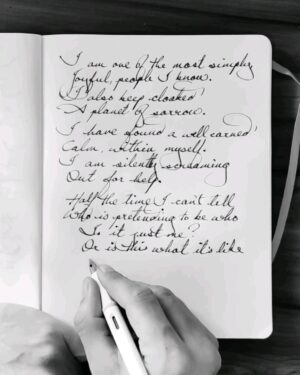 I am one of the most simply
Joyful, people I know.
I also keep cloaked
A planet of sorrow.
I have found a well earned
Calm, within myself.
I am silently screaming
Out for help.
Half the time I can't tell
Who is pretending to be who
Is it just me?
Or is this what it's like